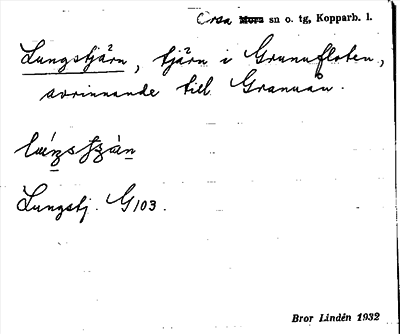 Orsa Mora sn o. tg, Kopparb. l.
Lungstjärn, tjärn i Grunufloten,
avrinnande till Granuån.
Lungstj. G103.
Bror Lindén 1932